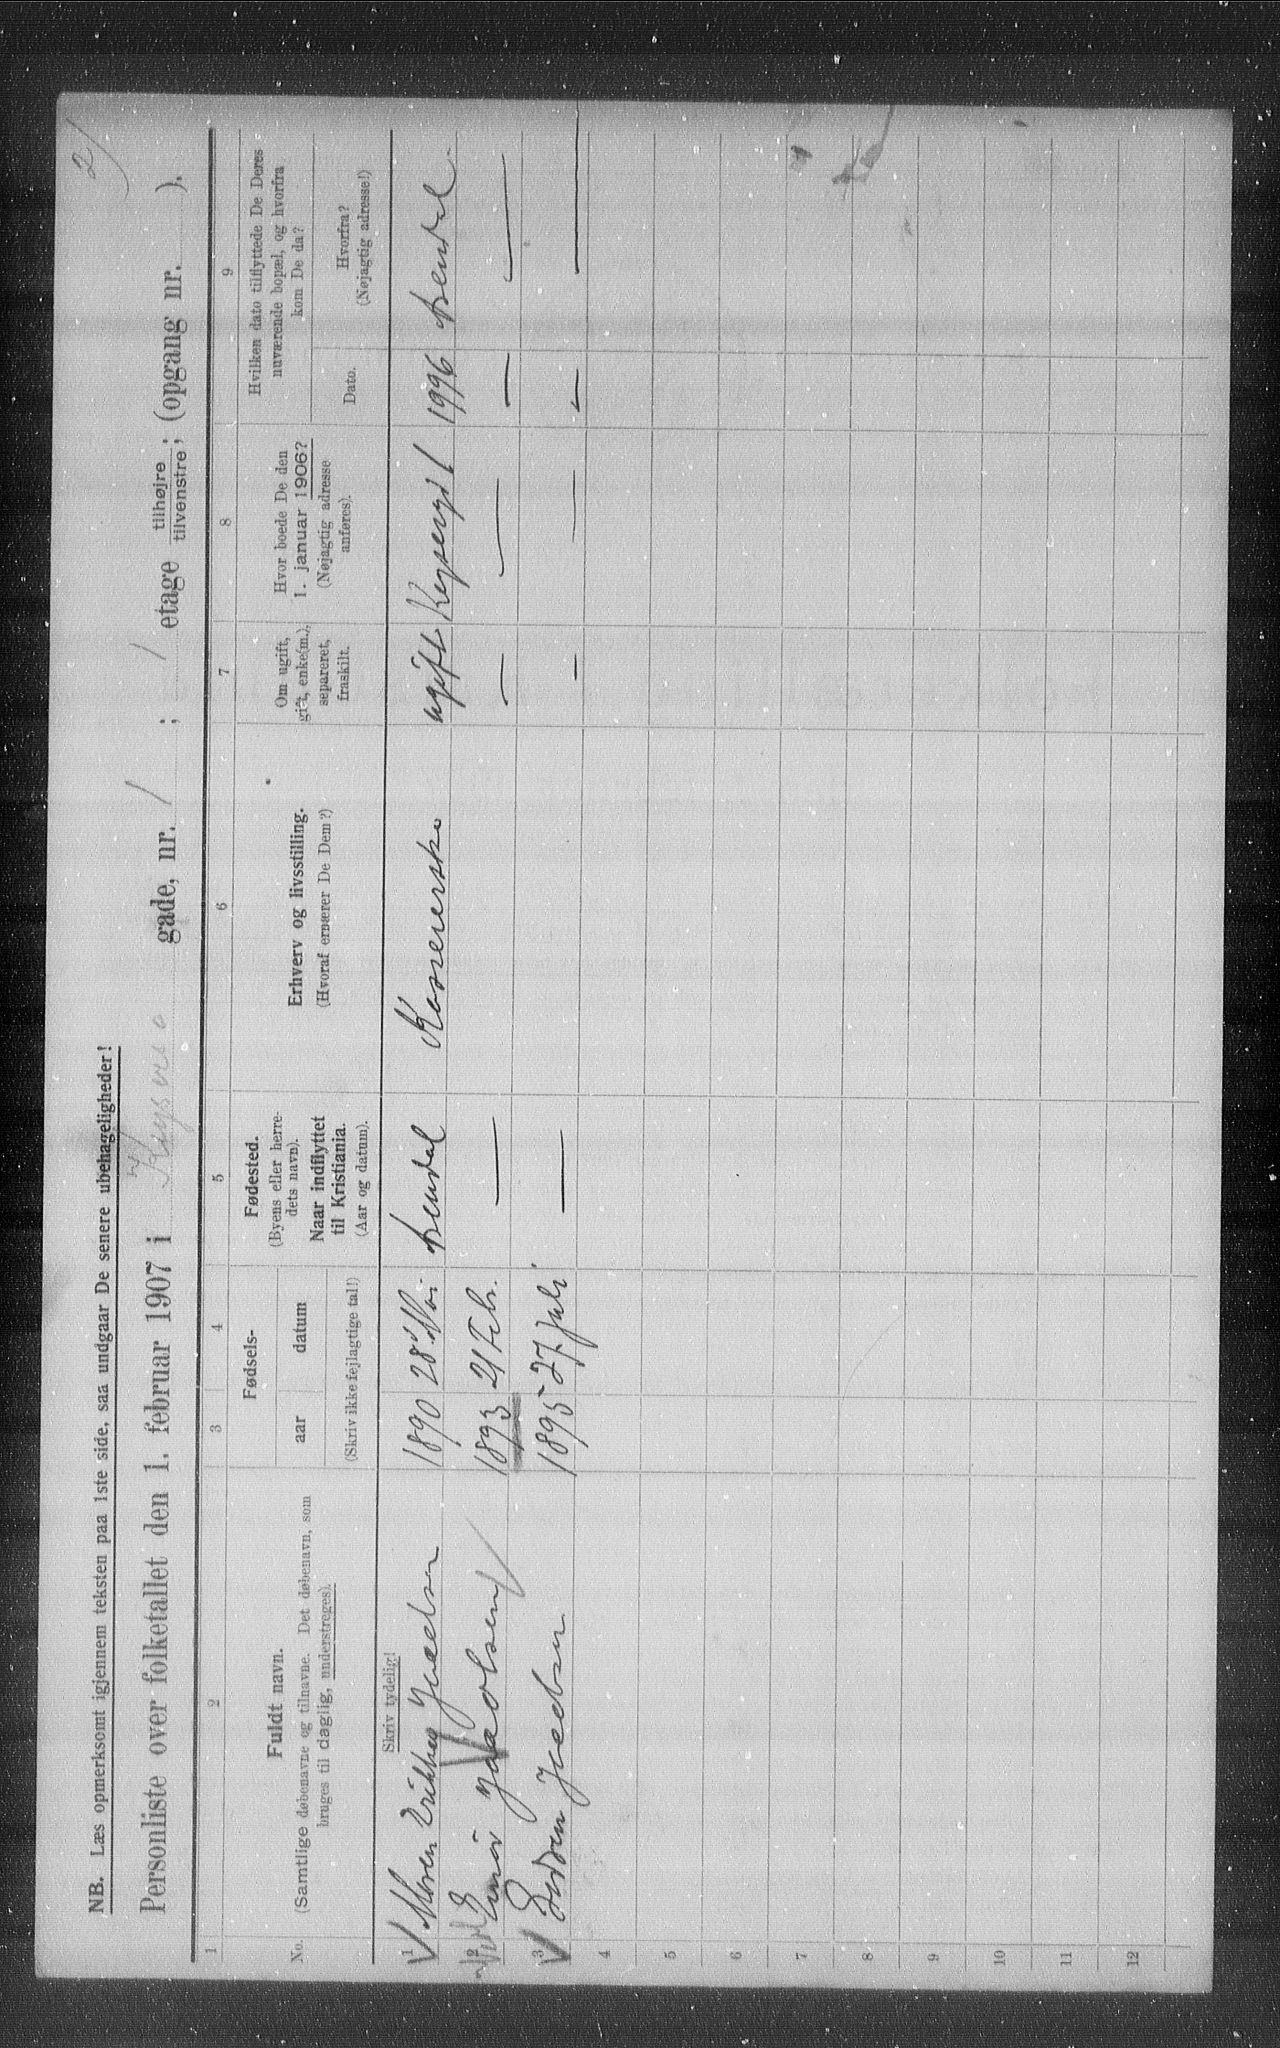 2)
NB. Læs opmerksomt igjennem teksten paa 1ste side, saa undgaar De senere ubehageligheder!
Personliste over folketallet den 1. februar 1907 i Keysers gade, nr. 1 ; 1 etage tilhøjre tilvenstre; (opgang nr. ).
1 2 3 4 5 6 7 8 9
No.
Fuldt navn.
(Samtlige døbenavne og tilnavne. Det døbenavn, som
bruges til daglig, understreges).
Fødsels-
aar datum
(Skriv ikke fejlagtige tal!)
Fødested.
(Byens eller herre-
dets navn).
Naar indflyttet
til Kristiania.
(Aar og datum).
Erhverv og livsstilling.
(Hvoraf ernærer De Dem?)
Om ugift,
gift, enke(m.),
separeret,
fraskilt.
Hvor boede De den
1. januar 1906?
(Nøjagtig adresse
anføres).
Hvilken dato tilflyttede De Deres
nuværende bopæl, og hvorfra
kom De da?
Dato.
Hvorfra?
(Nøjagtig adresse!)
Skriv tydelig!
1 1890 28 Kassererske ugift Keysersgd 1 1996
2 1893 21 Febr. — — — — —
3 1895 27 Juli — — — — —
4
5
6
7
8
9
10
11
12